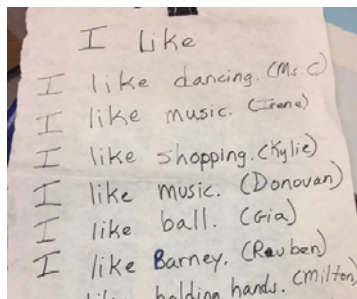 I like
I like dancing. (Ms. C)
I like music. (Irene)
I like shopping. (Kylie)
I like music. (Donovan)
I like ball. (Gia)
I like Barney. (Reuben)
like holding hands. (Milton)